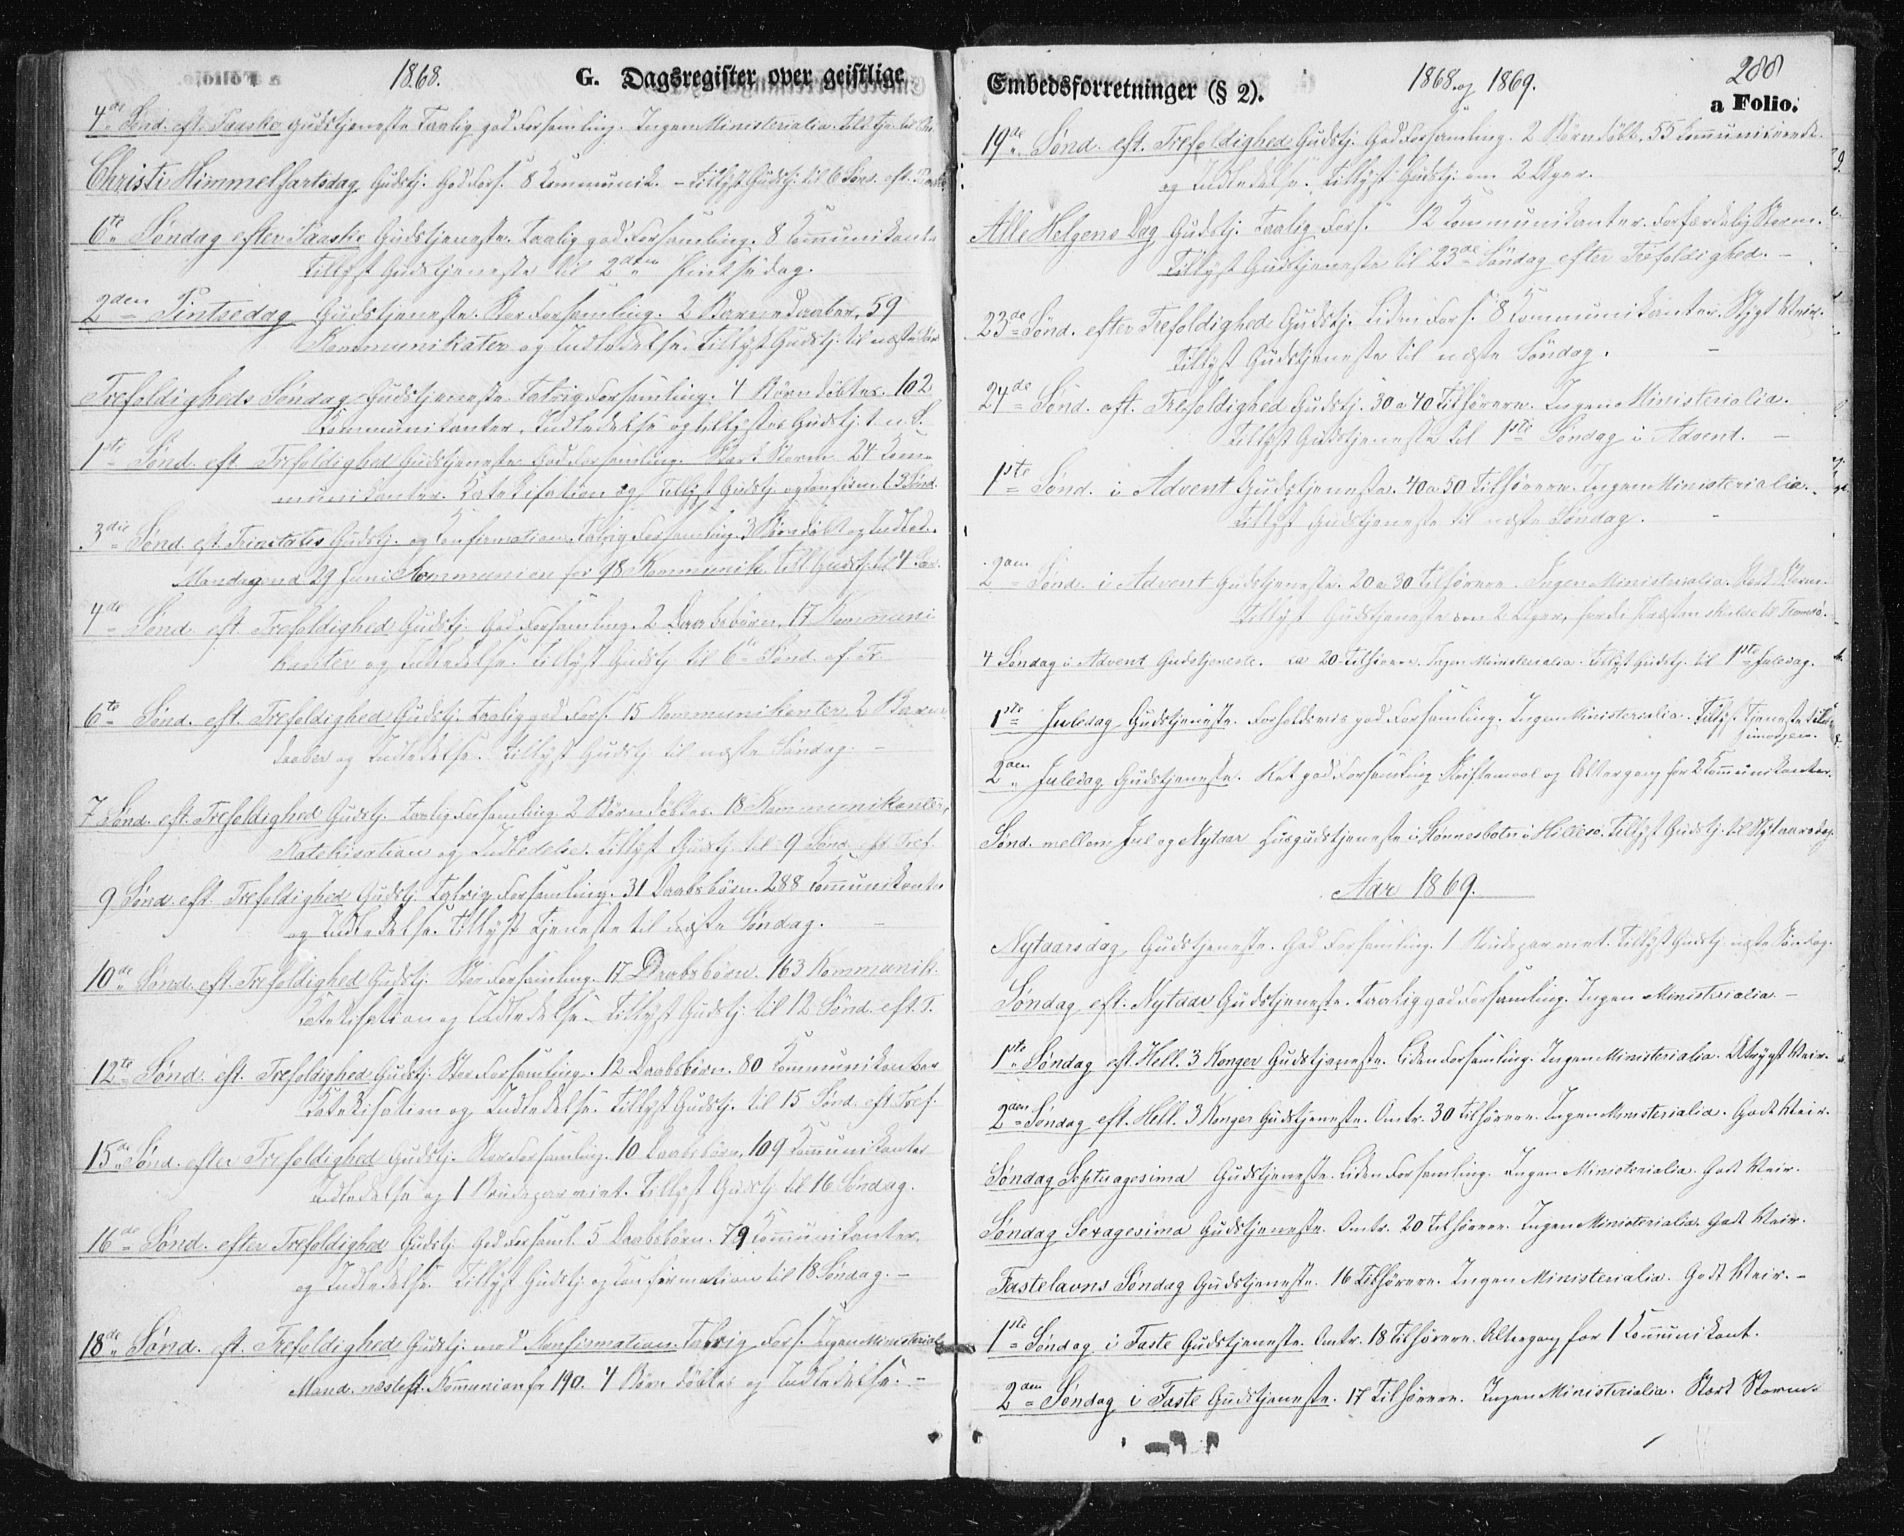 1868.
G. Dagsregister over geistlige
4de Sønd. eft. Paaske Gudstjeneste Taalig god Forsamling. Ingen Ministerialia.
Christi Himmelfartsdag Gudstj. God Fors. 8 Kommunik. – Tillyst Gudstj. til 6 Sønd. eft. Paaske
6te Søndag efter Paaske Gudstjeneste. Taalig god Forsamling. 8 Kommunikante
Tillyst Gudstjeneste til 2den Pintsedag.
2den Pintsedag Gudstjeneste. Stor Forsamling. 2 Barnedaaber, 59
Kommunikater og Indledelse. Tillyst Gudstj. til næste
Trefoldigheds Søndag Gudstjeneste. Talrig Forsamling. 4 Børn døbtes. 102
Kommunikanter. Indledelse og tillystes Gudstj. t. n. S.
1ste Sønd. eft. Trefoldighed Gudstjeneste God Forsamling. Stærk Storm 24 Kom-
munikanter. Katekisation og Tillyst Gudstj. og Confirm. t. 3 Sønd.
3die Sønd. eft. Trinitatis Gudstj. og Confirmation. Talrig Forsamling. 3 Børn døbt og Indled.
Mandagen d. 29 Juni Kommunion for 98 Kommunik. Till. Gudst. til 4 Søn.
4de Sønd. eft. Trefoldighed Gudstj. God Forsamling. 2 Daabsbørn, 17 Kommuni
kanter og Indledelse. Tillyst Gudstj. til 6te Sønd. ef. Tr.
6te Sønd. eft. Trefoldighed Gudstj. Taalig god Fors. 15 Kommunikanter 2 Barne
daaber og Indledelse. Tillyst Gudstj. til næste Søndag. –
7 Sønd. eft. Trefoldighed Gudstj. Taalig Forsamling 2 Børn døbtes. 18 Kommunikanter,
Katekisation og Indledelse. Tillyst Gudstj. til 9 Sønd. eft. Tref.
9 Sønd. eft. Trefoldighed Gudstj. Talrig Forsamling. 31 Daabsbørn. 288 Kommunikanter
og Indledelse. Tillyst Tjeneste til næste Søndag. –
10de Sønd. eft. Trefoldighed Gudstj. Stor Forsamling. 17 Daabsbørn. 163 Kommunik.
Katekisation og Indledelse – Tillyst Gudstj. til 12 Sønd. eft. T.
12te Sønd. eft. Trefoldighed Gudstj. Stor Forsamling. 12 Daabsbørn. 80 Kommunikanter
Katekisation og Indledelse. Tillyst Gudstj. til 15 Sønd. eft. Tref.
15de Sønd. efter Trefoldighed Gudstj. Stor Forsamling. 10 Daabsbørn, 109 Kommunikanter
Indledelse og 1 Brudepar viet. Tillyst Gudstj. til 16 Søndag.
16de Sønd. efter Trefoldighed Gudstj. God Forsaml. 5 Daabsbørn. 79 Kommunikanter
og Indledelse. Tillyst Gudstj. og Confirmation til 18 Søndag. –
18de Sønd. eft. Trefoldighed Gudstj. med Konfirmation. Talrig Fors. Ingen Ministerial.
Mand. næsteft. Kommunion for 190. 4 Børn døbtes og Indledelse. –
Embedsforretninger (§ 2).
1868 og 1869.
288
a Folio.
19de Sønd. eft. Trefoldighed Gudstj. God Forsamling. 2 Børn døbt, 55 Kommunicerede
og Indledelse. Tillyst Gudstj. om 2 Uger.
Alle Helgens Dag Gudstj. Taalig Fors. 12 Kommunikanter. Forfærdelig Storm.
Tillyst Gudstjeneste til 23de Søndag efter Trefoldighed. –
23de Sønd. efter Trefoldighed Gudstj. Liden Fors. 8 Kommunikanter. Stygt Veir.
Tillyst Gudstjeneste til næste Søndag. –
24de Sønd. eft. Trefoldighed Gudstj. 30 a 40 Tilhørere. Ingen Ministerialia.
Tillyst Gudstjeneste til 1ste Søndag i Advent. –
1ste Sønd. i Advent Gudstjeneste. 40 a 50 Tilhørere. Ingen Ministerialia.
Tillyst Gudstjeneste til næste Søndag. –
2den Sønd. i Advent Gudstjeneste. 20 a 30 Tilhørere. Ingen Ministerialia. Stærk Storm.
Tillyst Gudstjeneste om 2 Uger, fordi Præsten skulde til Tromsø.
4 Søndag i Advent Gudstjeneste. ca 20 Tilhørere. Ingen Ministerialia. Tillyst Gudstj. til 1ste Juledag.
1ste Juledag Gudstjeneste. Forholdsvis god Forsamling. Ingen Ministerialia. Tillyst Tjeneste til
imorgen.
2den Juledag Gudstjeneste. Ret god Forsamling Skriftemaal og Altergang for 2 Kommunikanter.
Sønd. mellem Jul og Nytaar Husgudstjeneste i Stønnesbotn i Hillesø. Tillyst Gudstj. til Nytaarsdag.
Aar 1869.
Nytaarsdag Gudstjeneste. God Forsamling. 1 Brudepar viet. Tillyst Gudstj. næste Søndag.
Søndag eft. Nytaar Gudstjeneste. Taalig god Forsamling. Ingen Ministerialia –
1ste Søndag eft. Hell. 3 Konger Gudstjeneste. Liden Forsamling. Ingen Ministerialia. Utrygt Veir.
2den Søndag eft. Hell. 3 Konger Gudstjeneste. Omtr. 30 Tilhørere. Ingen Ministerialia. Godt Veir.
Søndag Septuagesima Gudstjeneste. Liden Forsamling. Ingen Ministerialia. Godt Veir.
Søndag Sexagesima Gudstjeneste. Omtr. 20 Tilhørere. Ingen Ministerialia. Godt Veir.
Fastelavns Søndag Gudstjeneste. 16 Tilhørere. Ingen Ministerialia. Godt Veir. –
1ste Søndag i Faste Gudstjeneste. Omtr. 18 Tilhørere. Altergang for 1 Kommunikant.
2den Søndag i Faste Gudstjeneste. 17 Tilhørere. Ingen Ministerialia. Stærk Storm.